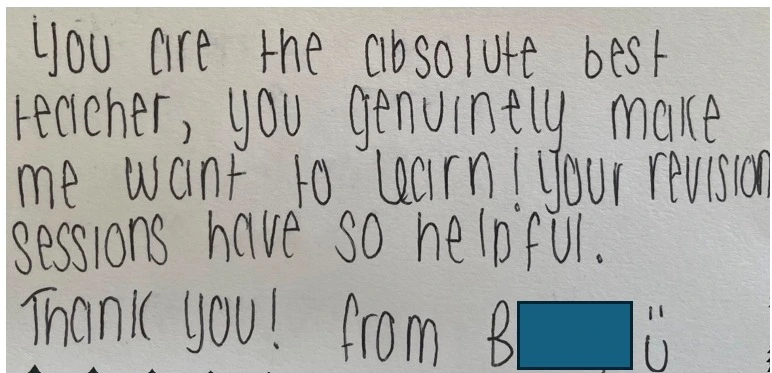 You are the absolute best
teacher, you genuinely make
me want to learn! your revision
sessions have so helpful.
Thank you! from B ü